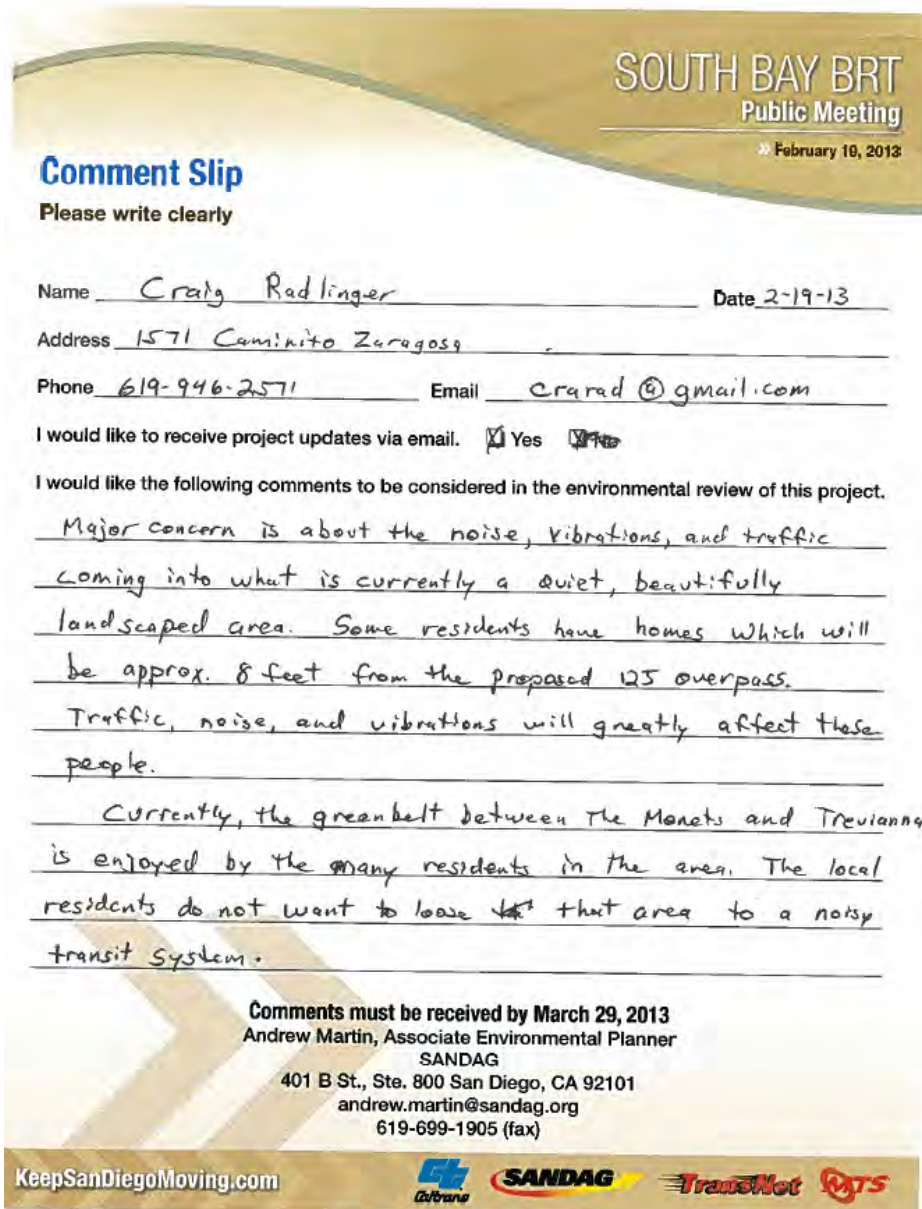 SOUTH BAY BRT
Public Meeting
» February 19, 2013
Comment Slip
Please write clearly
Name Craig Radlinger Date 2-19-13
Address 1571 Caminito Zaragosa
Phone 619-946-2571 Email crarad@gmail.com
I would like to receive project updates via email. Yes No
I would like the following comments to be considered in the environmental review of this project.
Major concern is about the noise, vibrations, and traffic
coming into what is currently a quiet, beautifully
landscaped area. Some residents have homes which will
be approx. 8 feet from the proposed 125 overpass.
Traffic, noise, and vibrations will greatly affect these
people.
Currently, the greenbelt between The Monets and Trevianna
is enjoyed by the many residents in the area. The local
residents do not want to loose that area to a noisy
transit system.
Comments must be received by March 29, 2013
Andrew Martin, Associate Environmental Planner
SANDAG
401 B St., Ste. 800 San Diego, CA 92101
andrew.martin@sandag.org
619-699-1905 (fax)
KeepSanDiegoMoving.com Caltrans SANDAG TransNet MTS